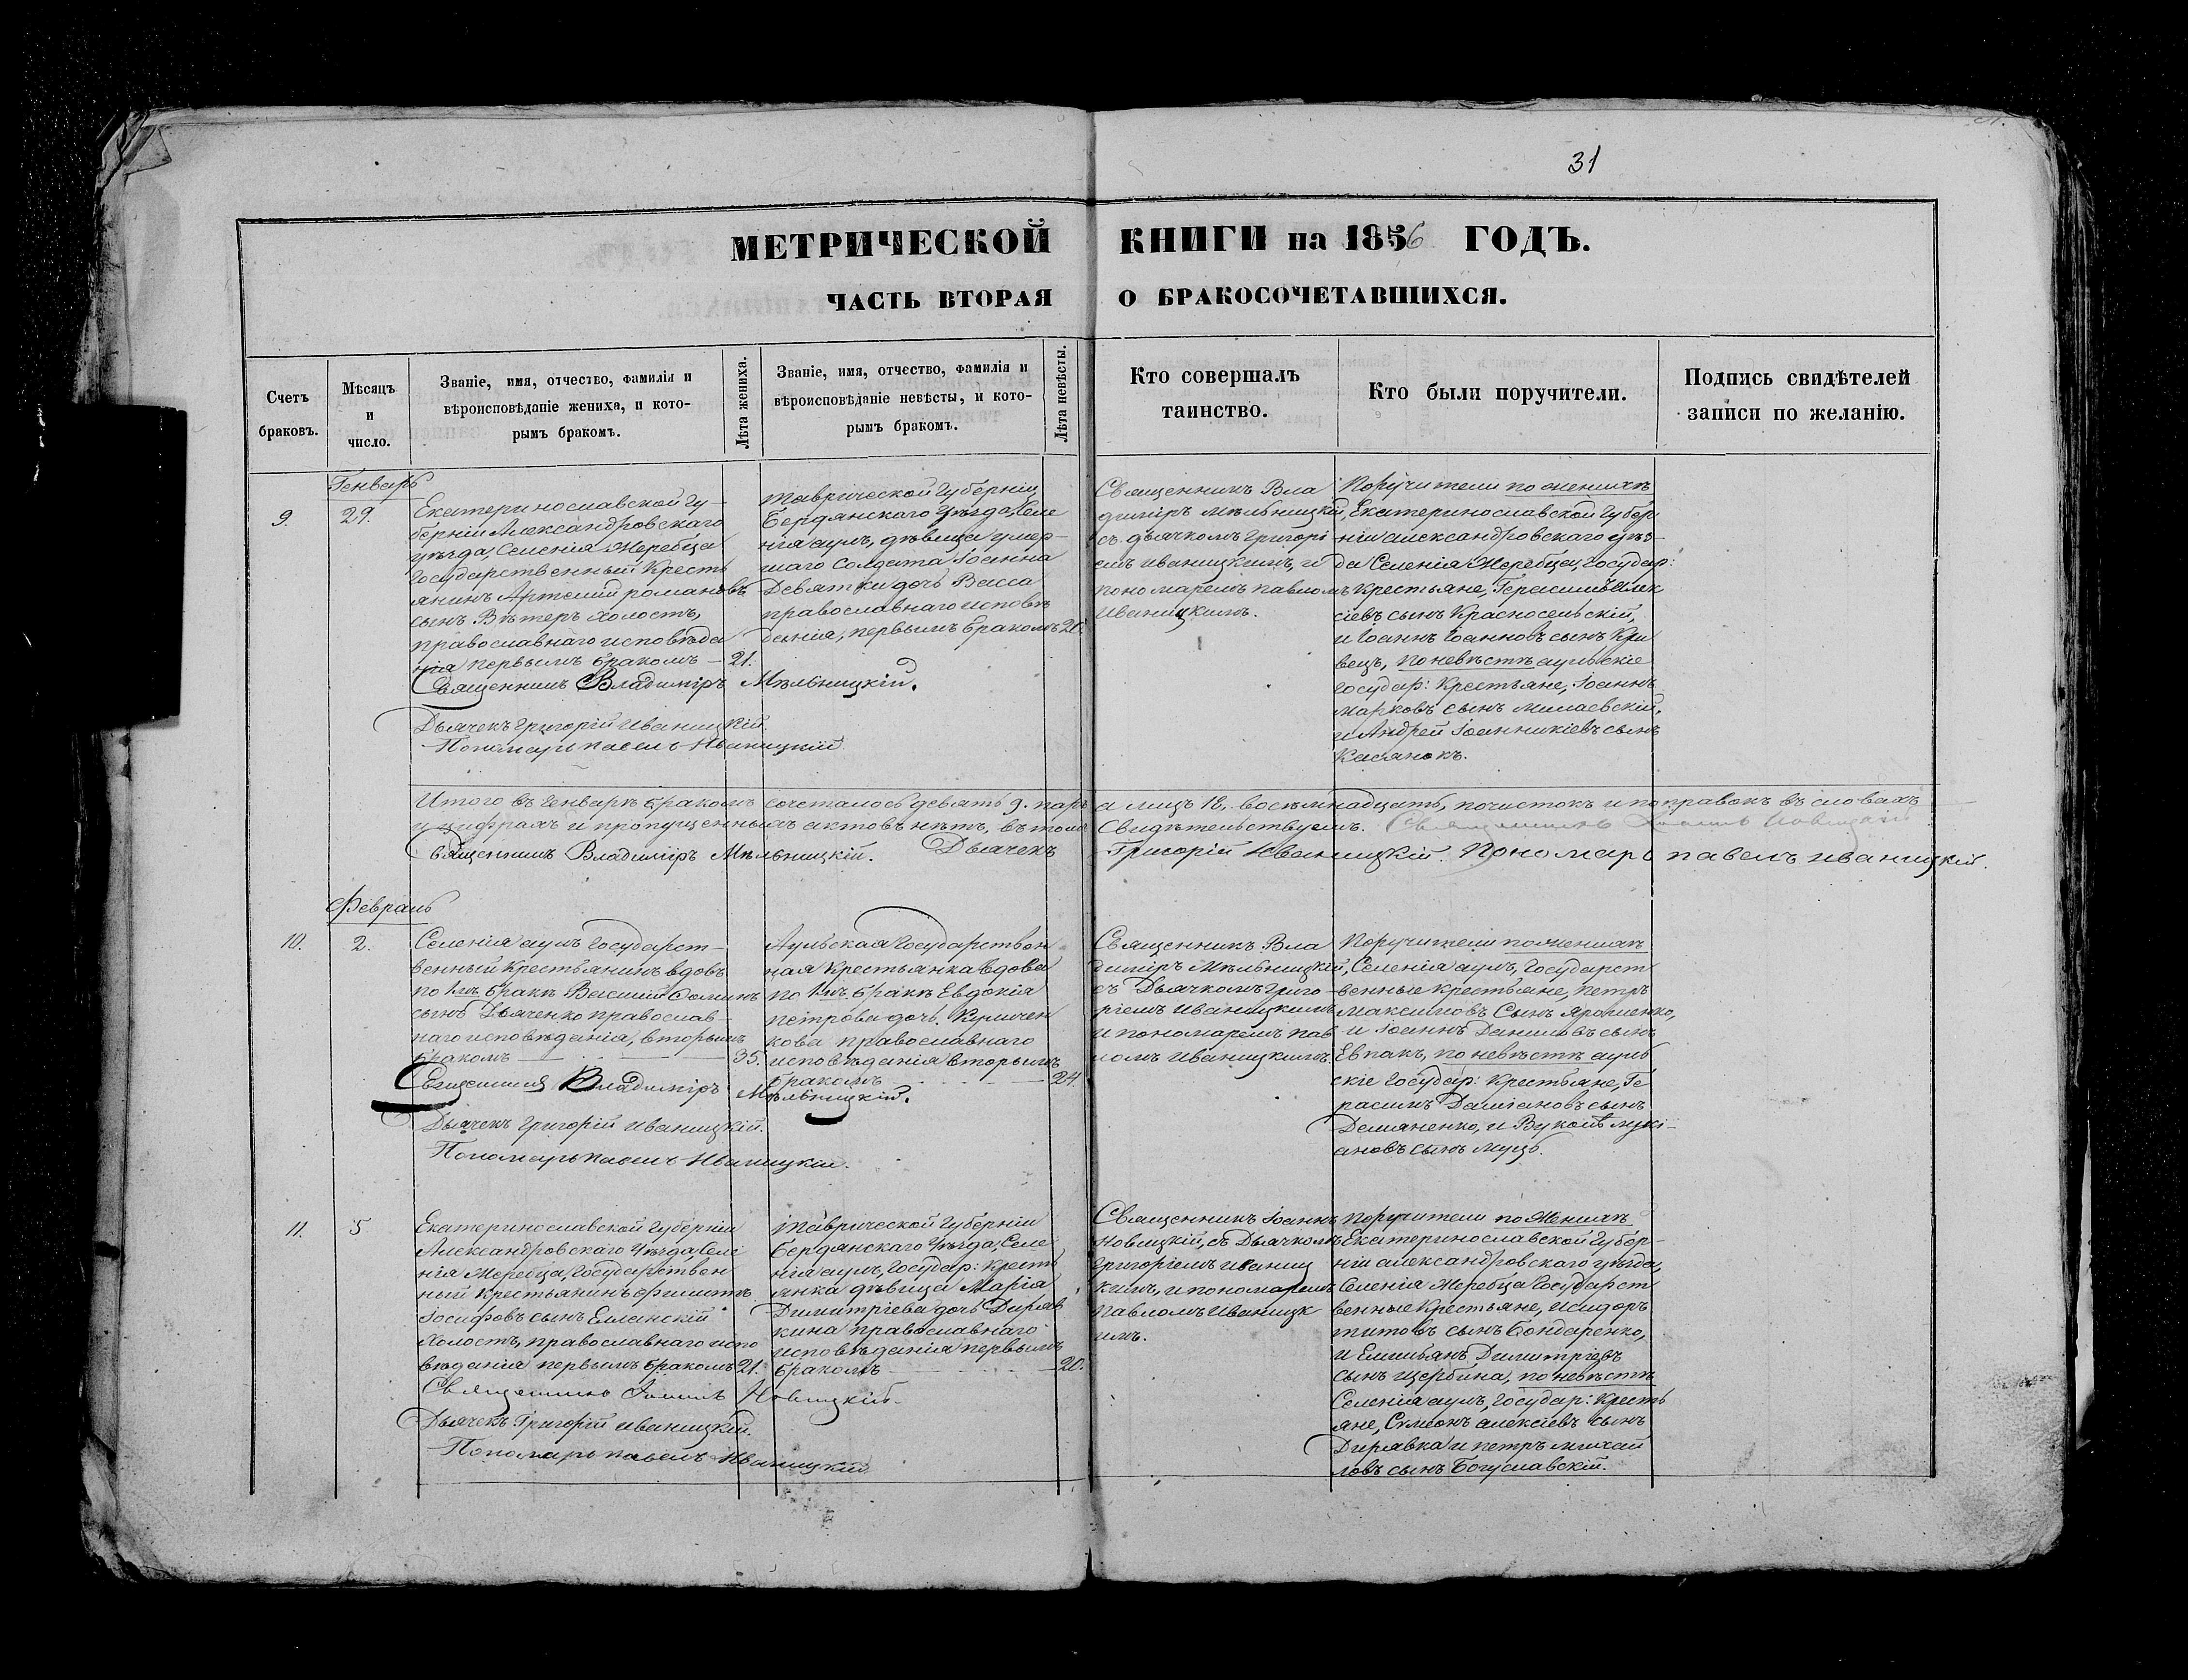 31
МЕТРИЧЕСКОЙ КНИГИ на 1856 ГОДЪ.
ЧАСТЬ ВТОРАЯ О БРАКОСОЧЕТАВШИХСЯ.
Счетъ
браковъ.
Мѣсяцъ
и
число.
Званіе, имя, отчество, фамилія и
вѣроисповѣданіе жениха, и кото-
рымъ бракомъ.
Лѣта жениха.
Званіе, имя, отчество, фамилія и
вѣроисповѣданіе невѣсты, и кото-
рымъ бракомъ.
Лѣта невѣсты.
Кто совершалъ
таинство.
Кто были поручители.
Подпись свидѣтелей
записи по желанію.
Генварь
9.
29.
Екатеринославской гу-
берніи Александровскаго
уѣзда, Селенія Жеребца
Государственный Кресть
янинъ Артемій романовъ
сынъ Вѣтеръ холостъ,
православнаго исповѣда
нія первымъ бракомъ —
21.
Таврической Губерніи
Бердянскаго уѣзда, Селе
нія аулъ, дѣвица умер-
шаго Солдата Іоанна
Девятки дочь Васса
православнаго исповѣ
данія, первымъ бракомъ
20.
Священникъ Вла
димиръ Мѣльницкій,
съ дьячкомъ Григорі
емъ иваницкимъ, и
пономаремъ павлом
Иваницкимъ.
Поручители по женихѣ
Екатеринославской Губер
ніи александровскаго уѣз-
да Селенія Жеребца, Государ:
крестьяне, Герасимъ Алек
сіевъ сынъ Красносельскій,
и Іоаннъ Іоанновъ сынъ Кри
вецъ, по невѣстѣ аульскіе
государ: Крестьяне, Іоаннъ
марковъ сынъ милаевскій,
и Андрей Іоанникіевъ сынъ
Касянокъ.
Священникъ Владимиръ Мѣльницкій.
Дьячекъ Григорій Иваницкій.
Пономарь павелъ Иваницкій
Итого въ Генварѣ бракомъ сочеталось девять 9. паръ а лицъ 18. восемьнадцать, почистокъ и поправокъ въ словахъ
и цифрахъ и пропущенныхъ актовъ нѣтъ, въ томъ Свидѣтельствуемъ. Священникъ Іоаннъ Новицкій
Священникъ Владимиръ Мѣльницкій. Дьячекъ Григорій Иваницкій. Пономарь павелъ иваницкій.
Февраль
10.
2.
Селенія аулъ Государст-
венный Крестьянинъ вдовъ
по 1мъ бракѣ Василій Фоминъ
сынъ Дьяченко православ-
наго исповѣданія, вторымъ
бракомъ
35.
Аульская Государствен
ная Крестьянка вдова
по 1мъ бракѣ Евдокія
петрова дочь
кова православнаго
исповѣданія вторымъ
бракомъ
24.
Священникъ Вла
димиръ Мѣльницкій,
съ Дьячкомъ Григо-
ріемъ Иваницкимъ
и пономаремъ пав
ломъ Иваницкимъ.
Поручители по женихѣ
Селенія аулъ, Государст
венные крестьяне, петръ
Максимовъ Сынъ Яроменко,
и Іоаннъ Даниловъ сынъ
Евпакъ, по невѣстѣ ауль
скіе Государ: Крестьяне, Ге
расимъ Даміановъ сынъ
Демяненко, и Вуколъ лукі-
ановъ сынъ
Священникъ Владимиръ Мѣльницкій.
Дьячекъ Григорій Иваницкій.
Пономарь павелъ Иваницкій.
11.
5
Екатеринославской губерніи
Александровскаго Уѣзда, Селе
нія Жеребца, Государствен
ный крестьянинъ Филиппъ
Іосифовъ сынъ Еланскій
холостъ, православнаго испо
вѣданія первымъ бракомъ
21.
Таврической губерніи
Бердянскаго Уѣзда, Селе
нія аулъ, Государ: Кресть
янка дѣвица Марія
Димитріева дочь Диряв
кина православнаго
исповѣданія первымъ
бракомъ
20.
Священникъ Іоаннъ
Новицкій, съ Дьячкомъ
григоріемъ иваниц
кимъ, и пономаремъ
павломъ Иваницк
имъ.
Поручители по Женихѣ
Екатеринославской Губер-
ніи александровскаго уѣзда,
Селенія Жеребца Государст
венные Крестьяне, Исидоръ
титовъ сынъ Бондаренко,
и Емиліянъ Димитріевъ
сынъ Щербина, по невѣстѣ
Селенія аулъ, Государ: Кресть
яне, Сѵмеонъ алексіевъ сынъ
Дирявка и петръ михай
ловъ сынъ Богуславскій.
Священникъ Іоаннъ Новицкій.
Дьячекъ Григорій иваницкій.
Пономарь павелъ Иваницкій